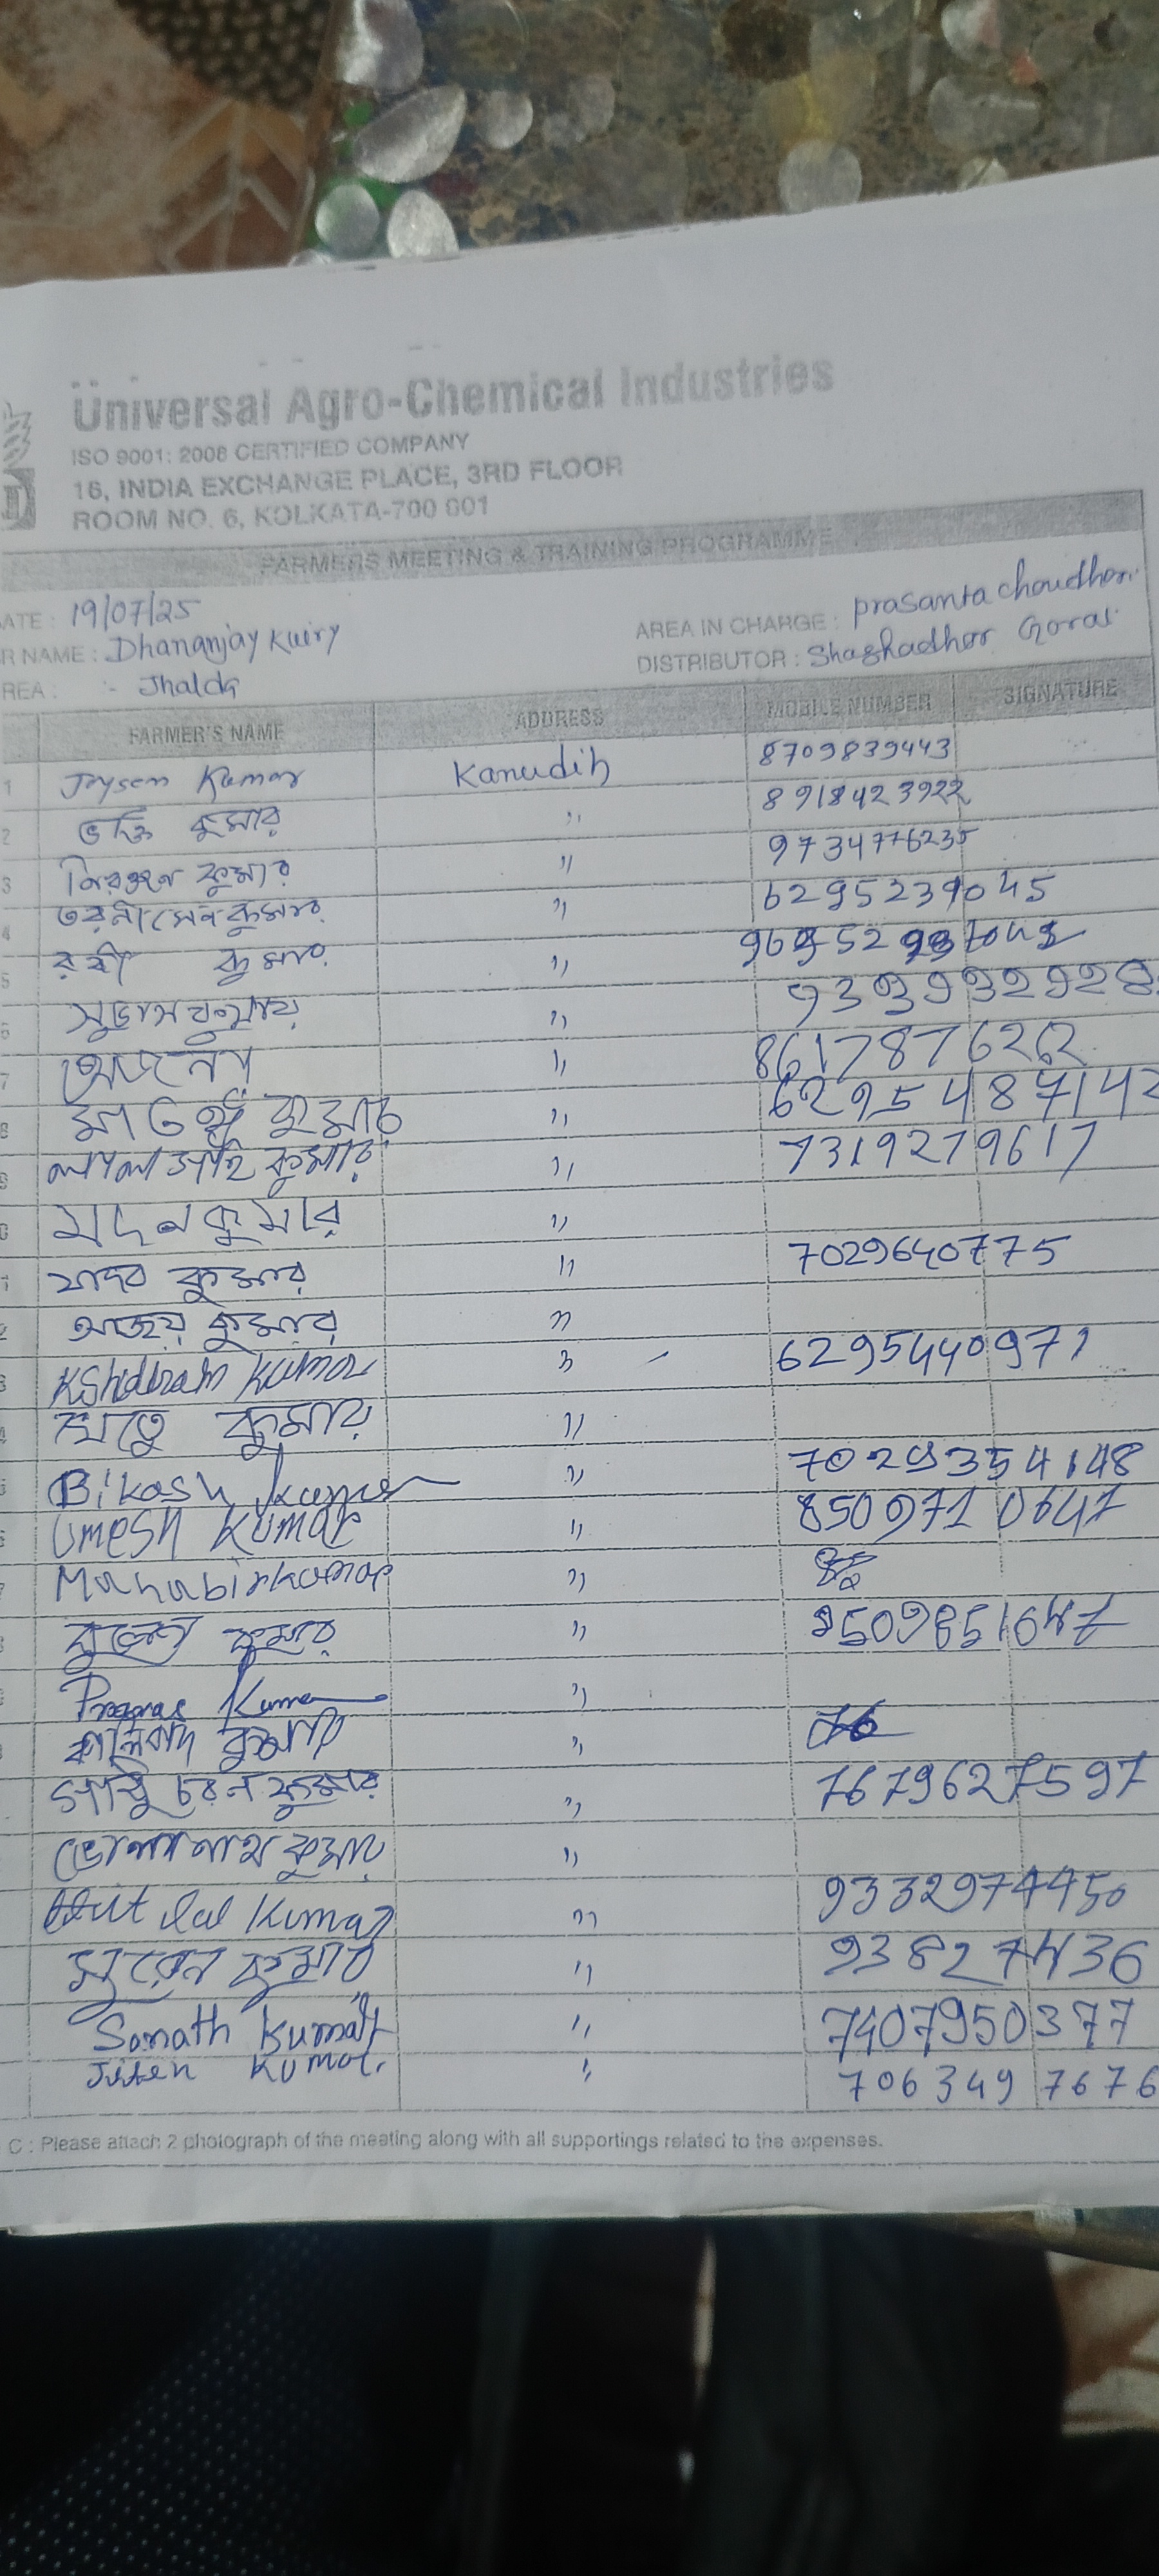 Universal Agro-Chemical Industries
ISO 9001: 2008 CERTIFIED COMPANY
16, INDIA EXCHANGE PLACE, 3RD FLOOR
ROOM NO. 6, KOLKATA-700 001
FARMERS MEETING & TRAINING PROGRAMME
ATE : 19/07/25 AREA IN CHARGE : Prasanta Choudhari
R NAME : Dhananjay Kuiry DISTRIBUTOR : Shashadhor Gorai
REA : Jhalda
FARMER'S NAME ADDRESS MOBILE NUMBER SIGNATURE
1 Joysen Kumar Kanudih 8709839443
2 ভক্তি কুমার " 8918423922
3 নিরঞ্জন কুমার " 9734776235
4 তরনীসেন কুমার " 6295239045
5 রবী কুমার "
6 সুভাস কুমার " 9339932928
7 "
8 কুমার " 6295487142
9 কুমার " 7319279617
মদন কুমার "
যাদব কুমার " 7029640775
অজয় কুমার "
Kshudiram Kumar " 6295440971
কুমার "
Bikash Kumar " 7029354148
Umesh Kumar " 8509710647
Mahabir kumar "
কুমার "
Kumar "
কুমার "
চরন কুমার " 7679627597
ভোলানাথ কুমার "
Lal Kumar " 9332974450
সুরেন কুমার " 938274436
Sonath Kumar " 7407950377
Jiten Kumar " 7063497676
C : Please attach 2 photograph of the meeting along with all supportings related to the expenses.